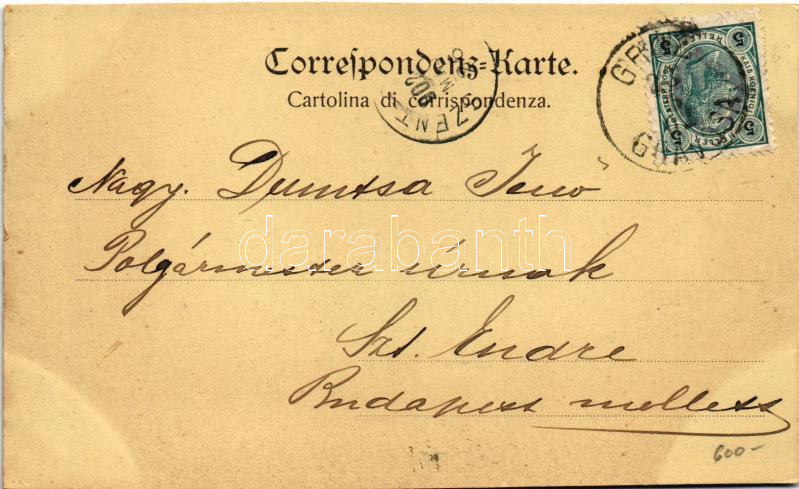 Correspondenz-Karte.
Cartolina di corrispondenza.
5 HELLER 5
Nagy. Dumtsa Jenő
Polgármester úrnak
Szt. Endre
Budapest mellett
600-
darabanth